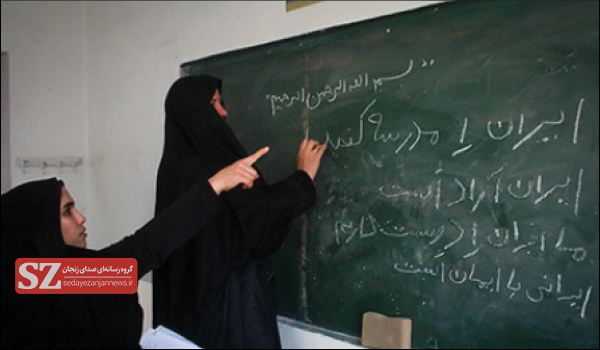 "بسم الله الرحمن الرحیم"
ایران را مدرسه کنید
ایران آزاد است
ما ایران را دوست داریم
ایرانی با ایمان است
SZ گروه رسانه‌ای صدای زنجان
sedayezanjannews.ir